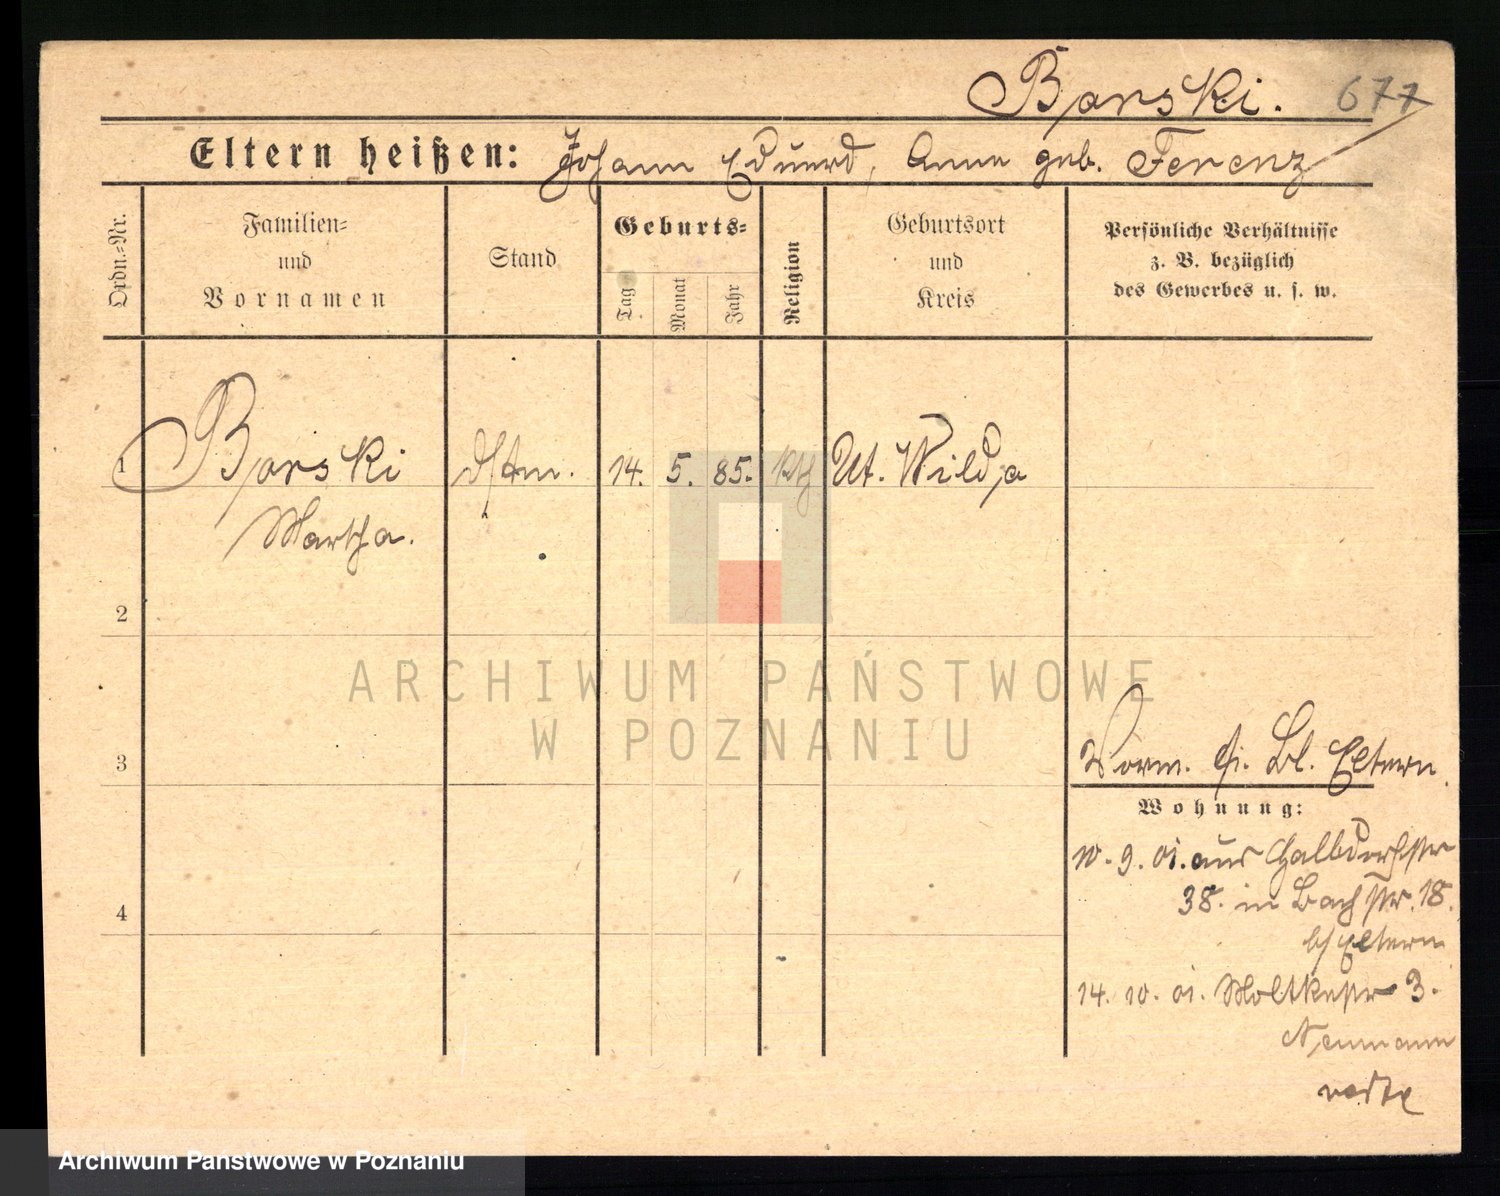 Borski. 677
Eltern heißen: Johann Eduard, Anna geb. Ferenz
Ordn.-Nr.
Familien-
und
Vornamen
Stand
Geburts-
Tag
Monat
Jahr
Religion
Geburtsort
und
Kreis
Persönliche Verhältnisse
z. B. bezüglich
des Gewerbes u. s. w.
1 Borski 14. 5. 85. kth Ut. Wilda
Martha.
2
ARCHIWUM PAŃSTWOWE
W POZNANIU
3
Vorm. Bl. Eltern
Wohnung:
10. 9. 01. aus Halbdorfstr
38. in Bachstr. 18.
4
b/ Eltern
14. 10. 01. Moltkestr 3.
Neumann
Archiwum Państwowe w Poznaniu